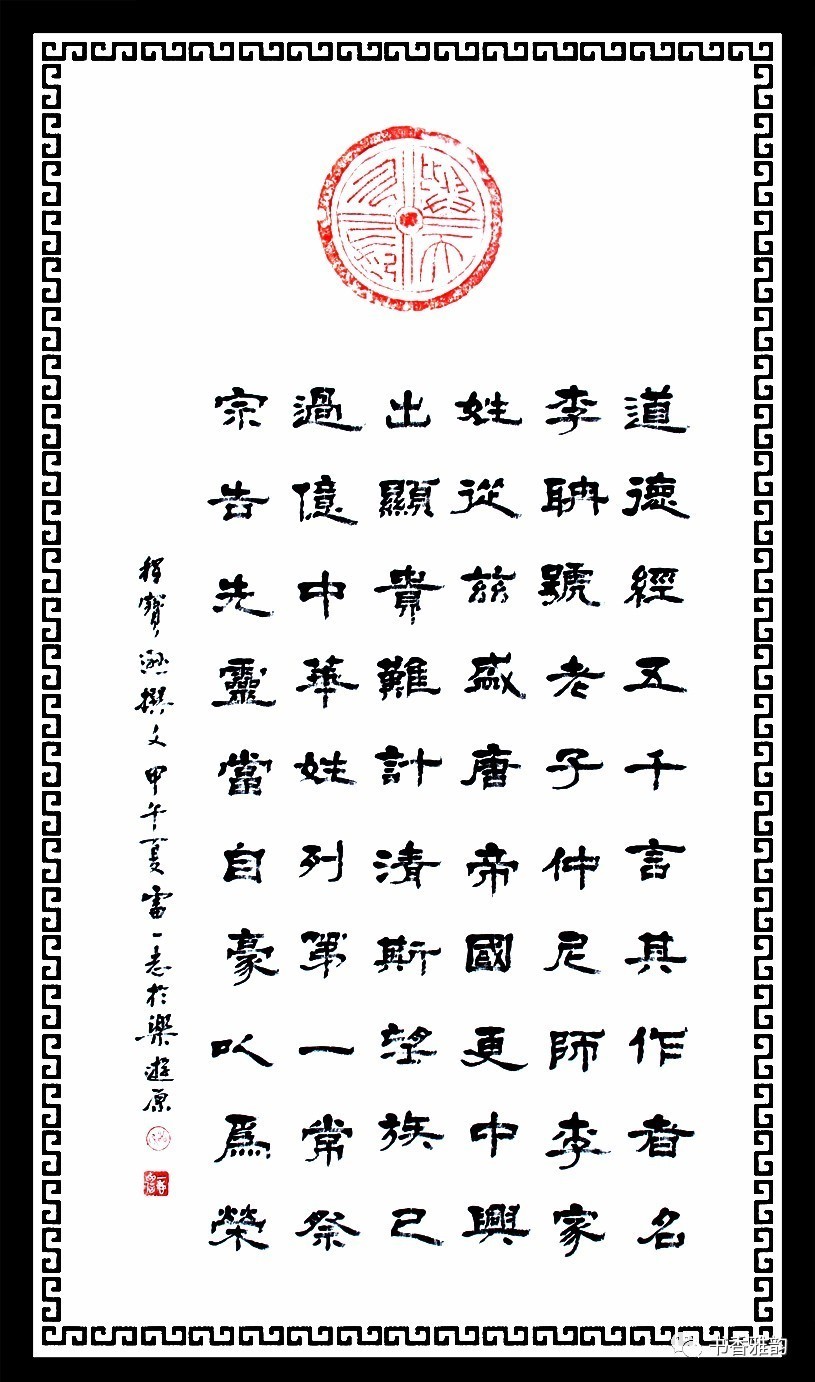 道德經五千言其作者名
李聃號老子仲尼師李家
姓從茲盛唐帝國更中興
出顯貴難計清斯望族已
過億中華姓列第一常祭
宗告先靈當自豪以爲榮
程寶撰文甲午夏雷一志於樂遊原
书香雅韵